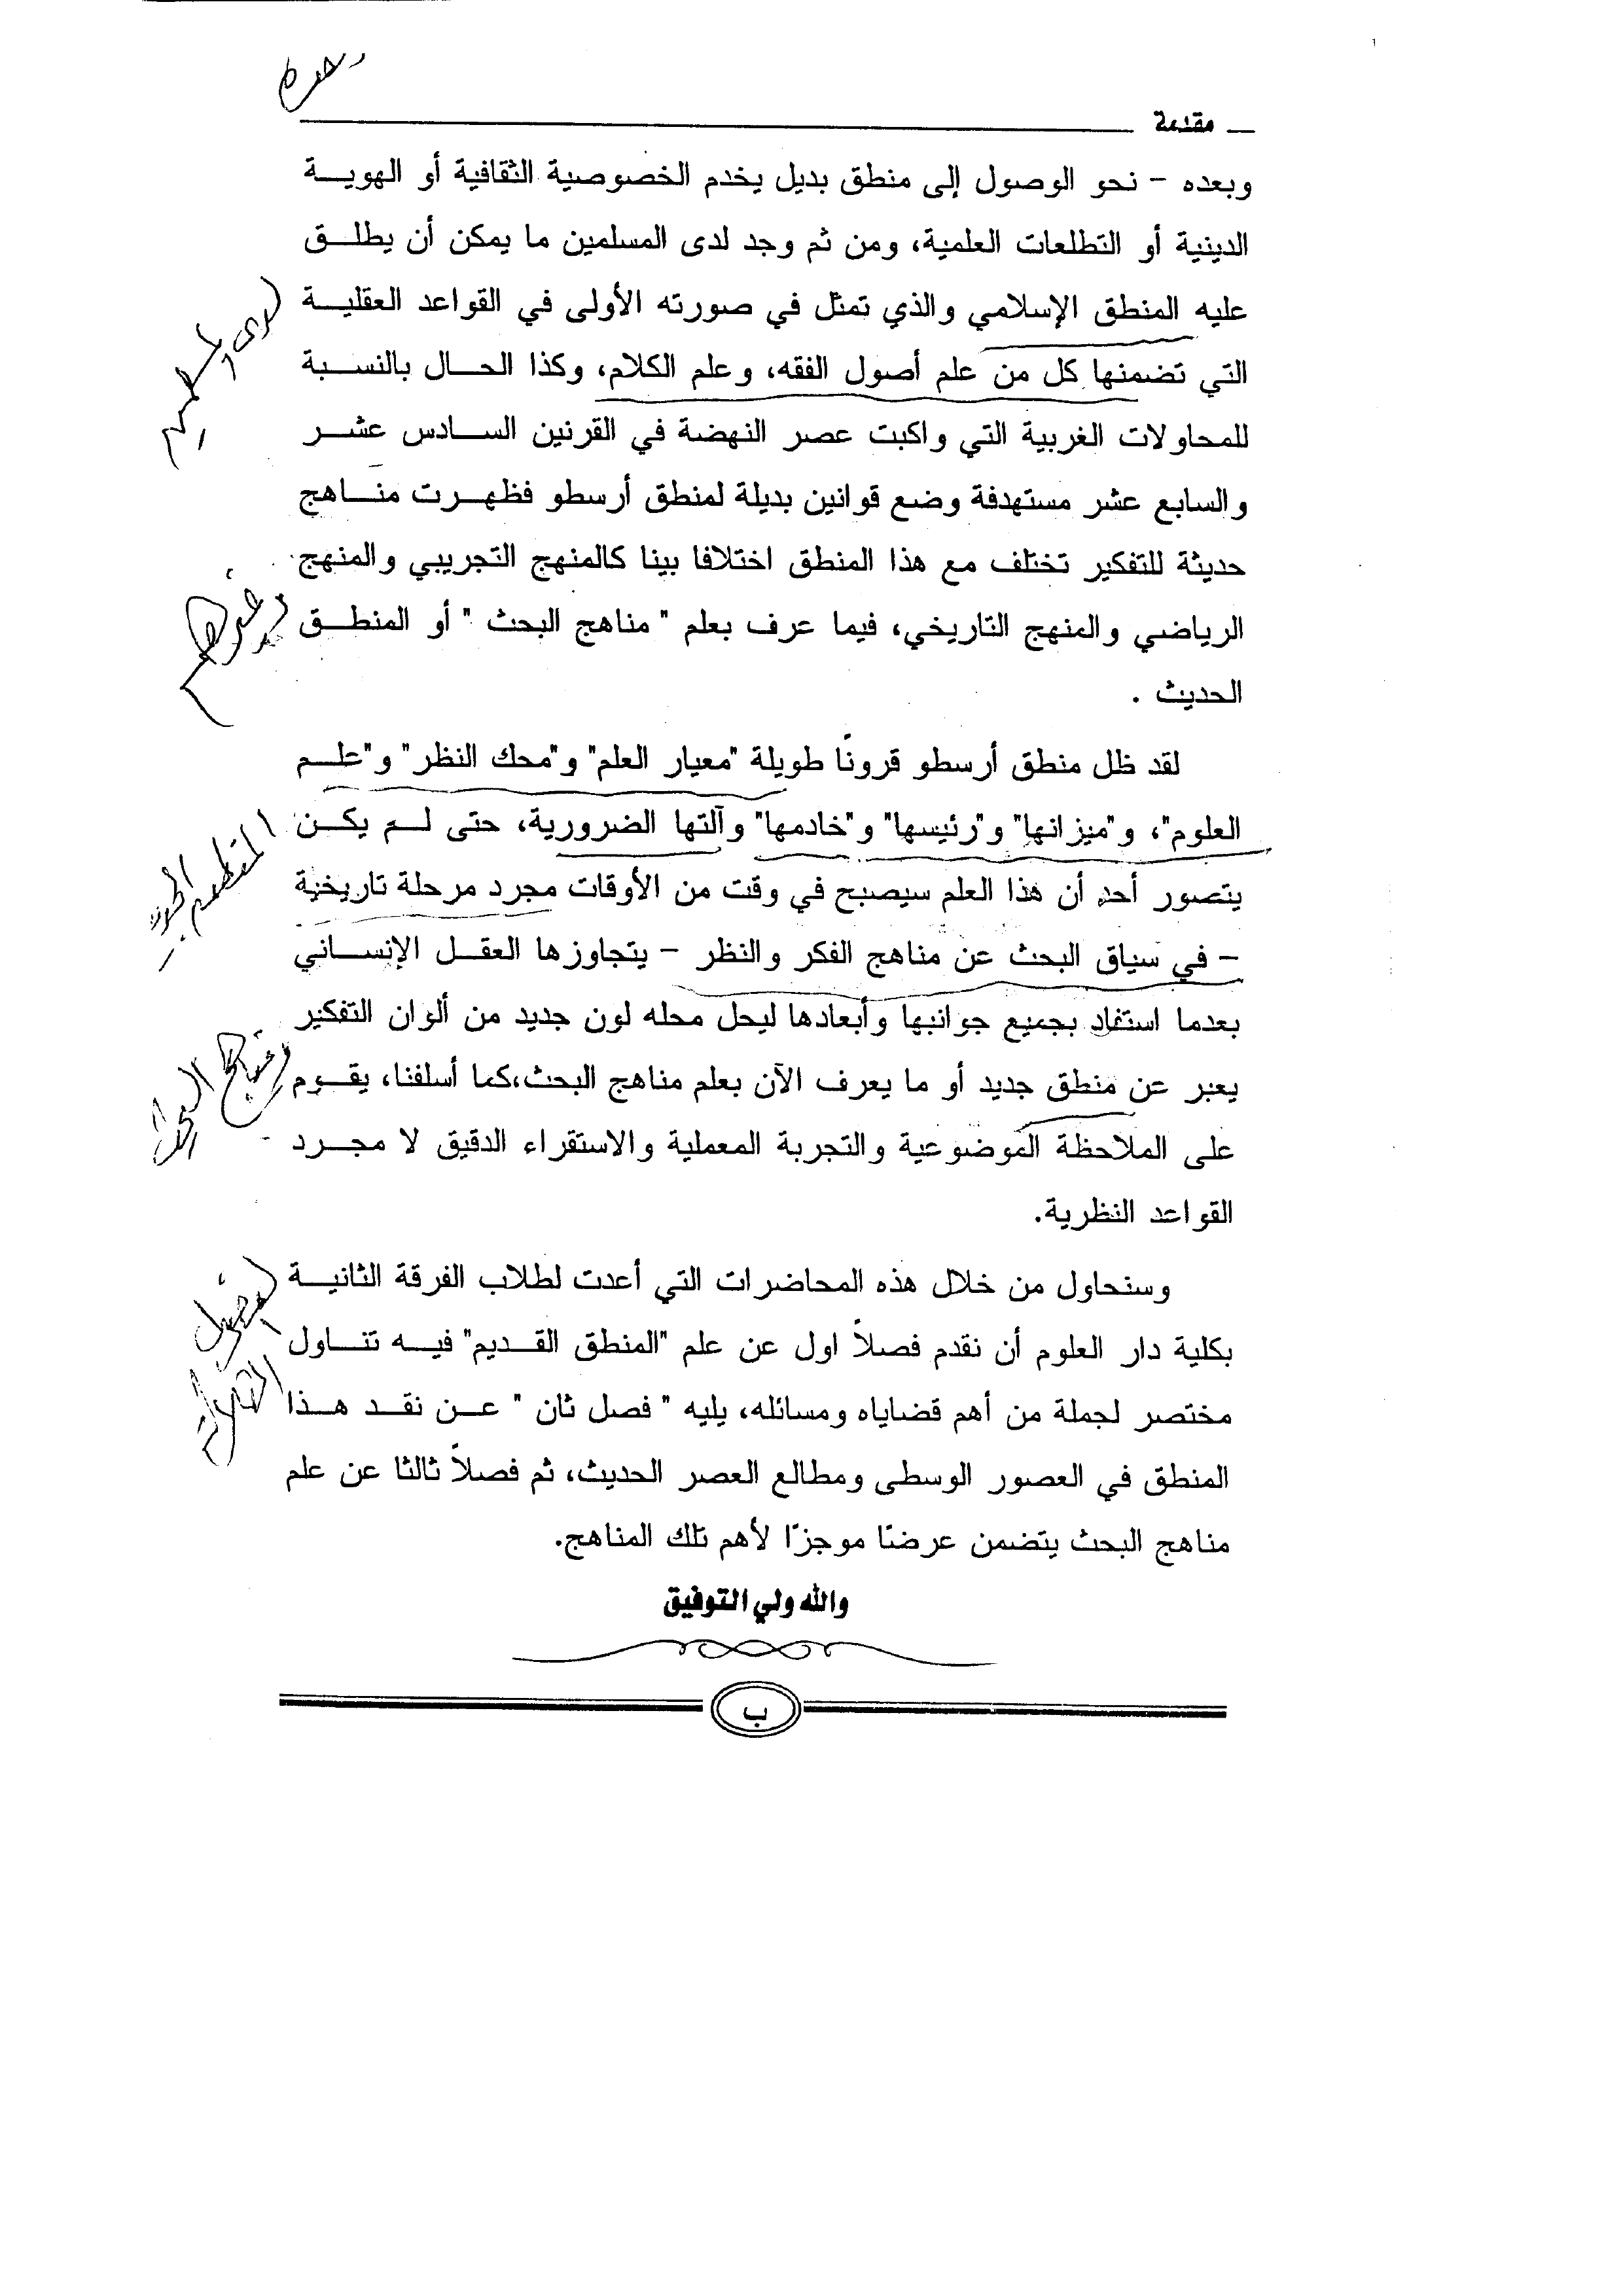 مقدمة
وبعده - نحو الوصول إلى منطق بديل يخدم الخصوصية الثقافية أو الهوية
الدينية أو التطلعات العلمية، ومن ثم وجد لدى المسلمين ما يمكن أن يطلق
عليه المنطق الإسلامي والذي تمثل في صورته الأولى في القواعد العقلية
التي تضمنها كل من علم أصول الفقه، وعلم الكلام، وكذا الحال بالنسبة
للمحاولات الغربية التي واكبت عصر النهضة في القرنين السادس عشر
والسابع عشر مستهدفة وضع قوانين بديلة لمنطق أرسطو فظهرت مناهج
حديثة للتفكير تختلف مع هذا المنطق اختلافا بينا كالمنهج التجريبي والمنهج
الرياضي والمنهج التاريخي، فيما عرف بعلم " مناهج البحث " أو المنطق
الحديث .
لقد ظل منطق أرسطو قرونًا طويلة "معيار العلم" و"محك النظر" و"علم
العلوم"، و"ميزانها" و"رئيسها" و"خادمها" وآلتها الضرورية، حتى لم يكن
يتصور أحد أن هذا العلم سيصبح في وقت من الأوقات مجرد مرحلة تاريخية
- في سياق البحث عن مناهج الفكر والنظر - يتجاوزها العقل الإنساني
بعدما استفاد بجميع جوانبها وأبعادها ليحل محله لون جديد من ألوان التفكير
يعبر عن منطق جديد أو ما يعرف الآن بعلم مناهج البحث،كما أسلفنا، يقوم
على الملاحظة الموضوعية والتجربة المعملية والاستقراء الدقيق لا مجرد
القواعد النظرية.
وسنحاول من خلال هذه المحاضرات التي أعدت لطلاب الفرقة الثانية
بكلية دار العلوم أن نقدم فصلاً اول عن علم "المنطق القديم" فيه تناول
مختصر لجملة من أهم قضاياه ومسائله، يليه " فصل ثان " عن نقد هذا
المنطق في العصور الوسطى ومطالع العصر الحديث، ثم فصلاً ثالثا عن علم
مناهج البحث يتضمن عرضًا موجزًا لأهم تلك المناهج.
والله ولي التوفيق
ب